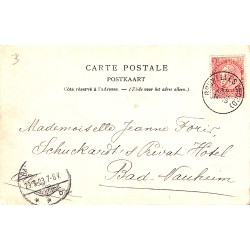 3
CARTE POSTALE
POSTKAART
(Côté réservé à l'adresse. — (Zijde voor het adres alleen.)
BRUXELLES
Mademoiselle Jeanne Foris
Schuckardt's Privat Hotel
Bad-Nauheim
7-8 V.